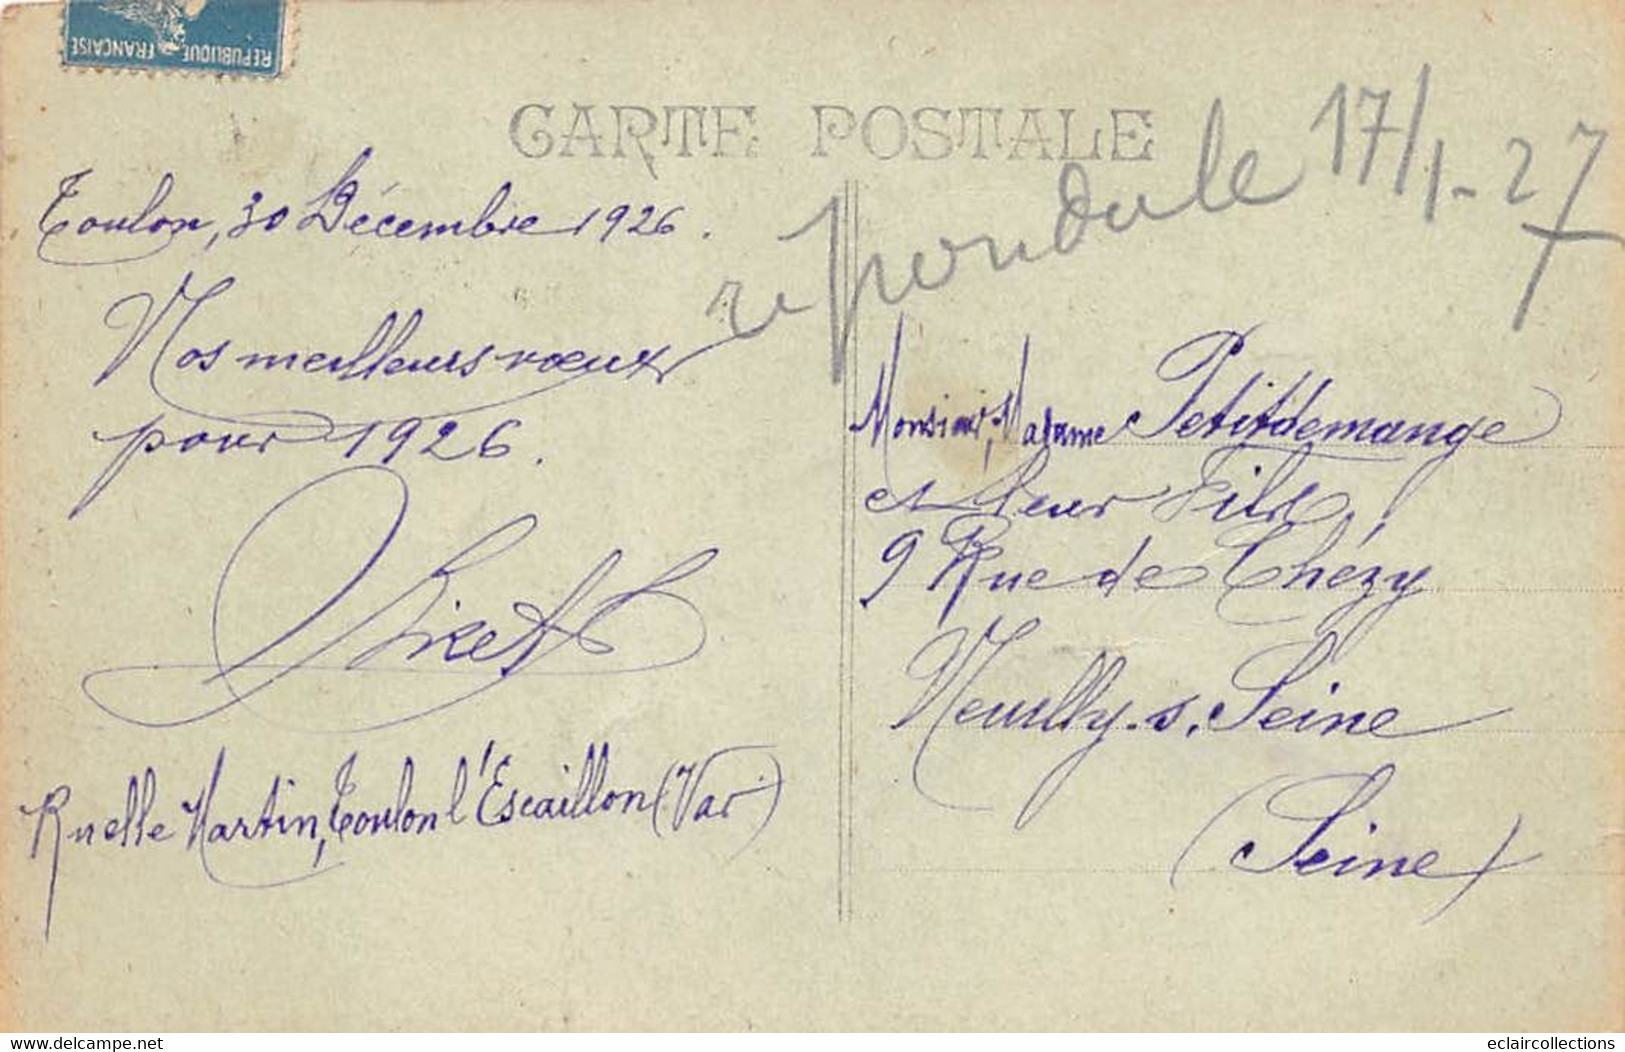 REPUBLIQUE FRANÇAISE
CARTE POSTALE
répondu le 17/1-27
Toulon, 30 Décembre 1926.
Nos meilleurs vœux
pour 1926.
Ruelle Martin, Toulon l'Escaillon (Var)
Monsieur, Madame Petitdemange
et leur Fils
9 Rue de Chézy
Neuilly-s, Seine
(Seine)
www.delcampe.net
eclaircollections